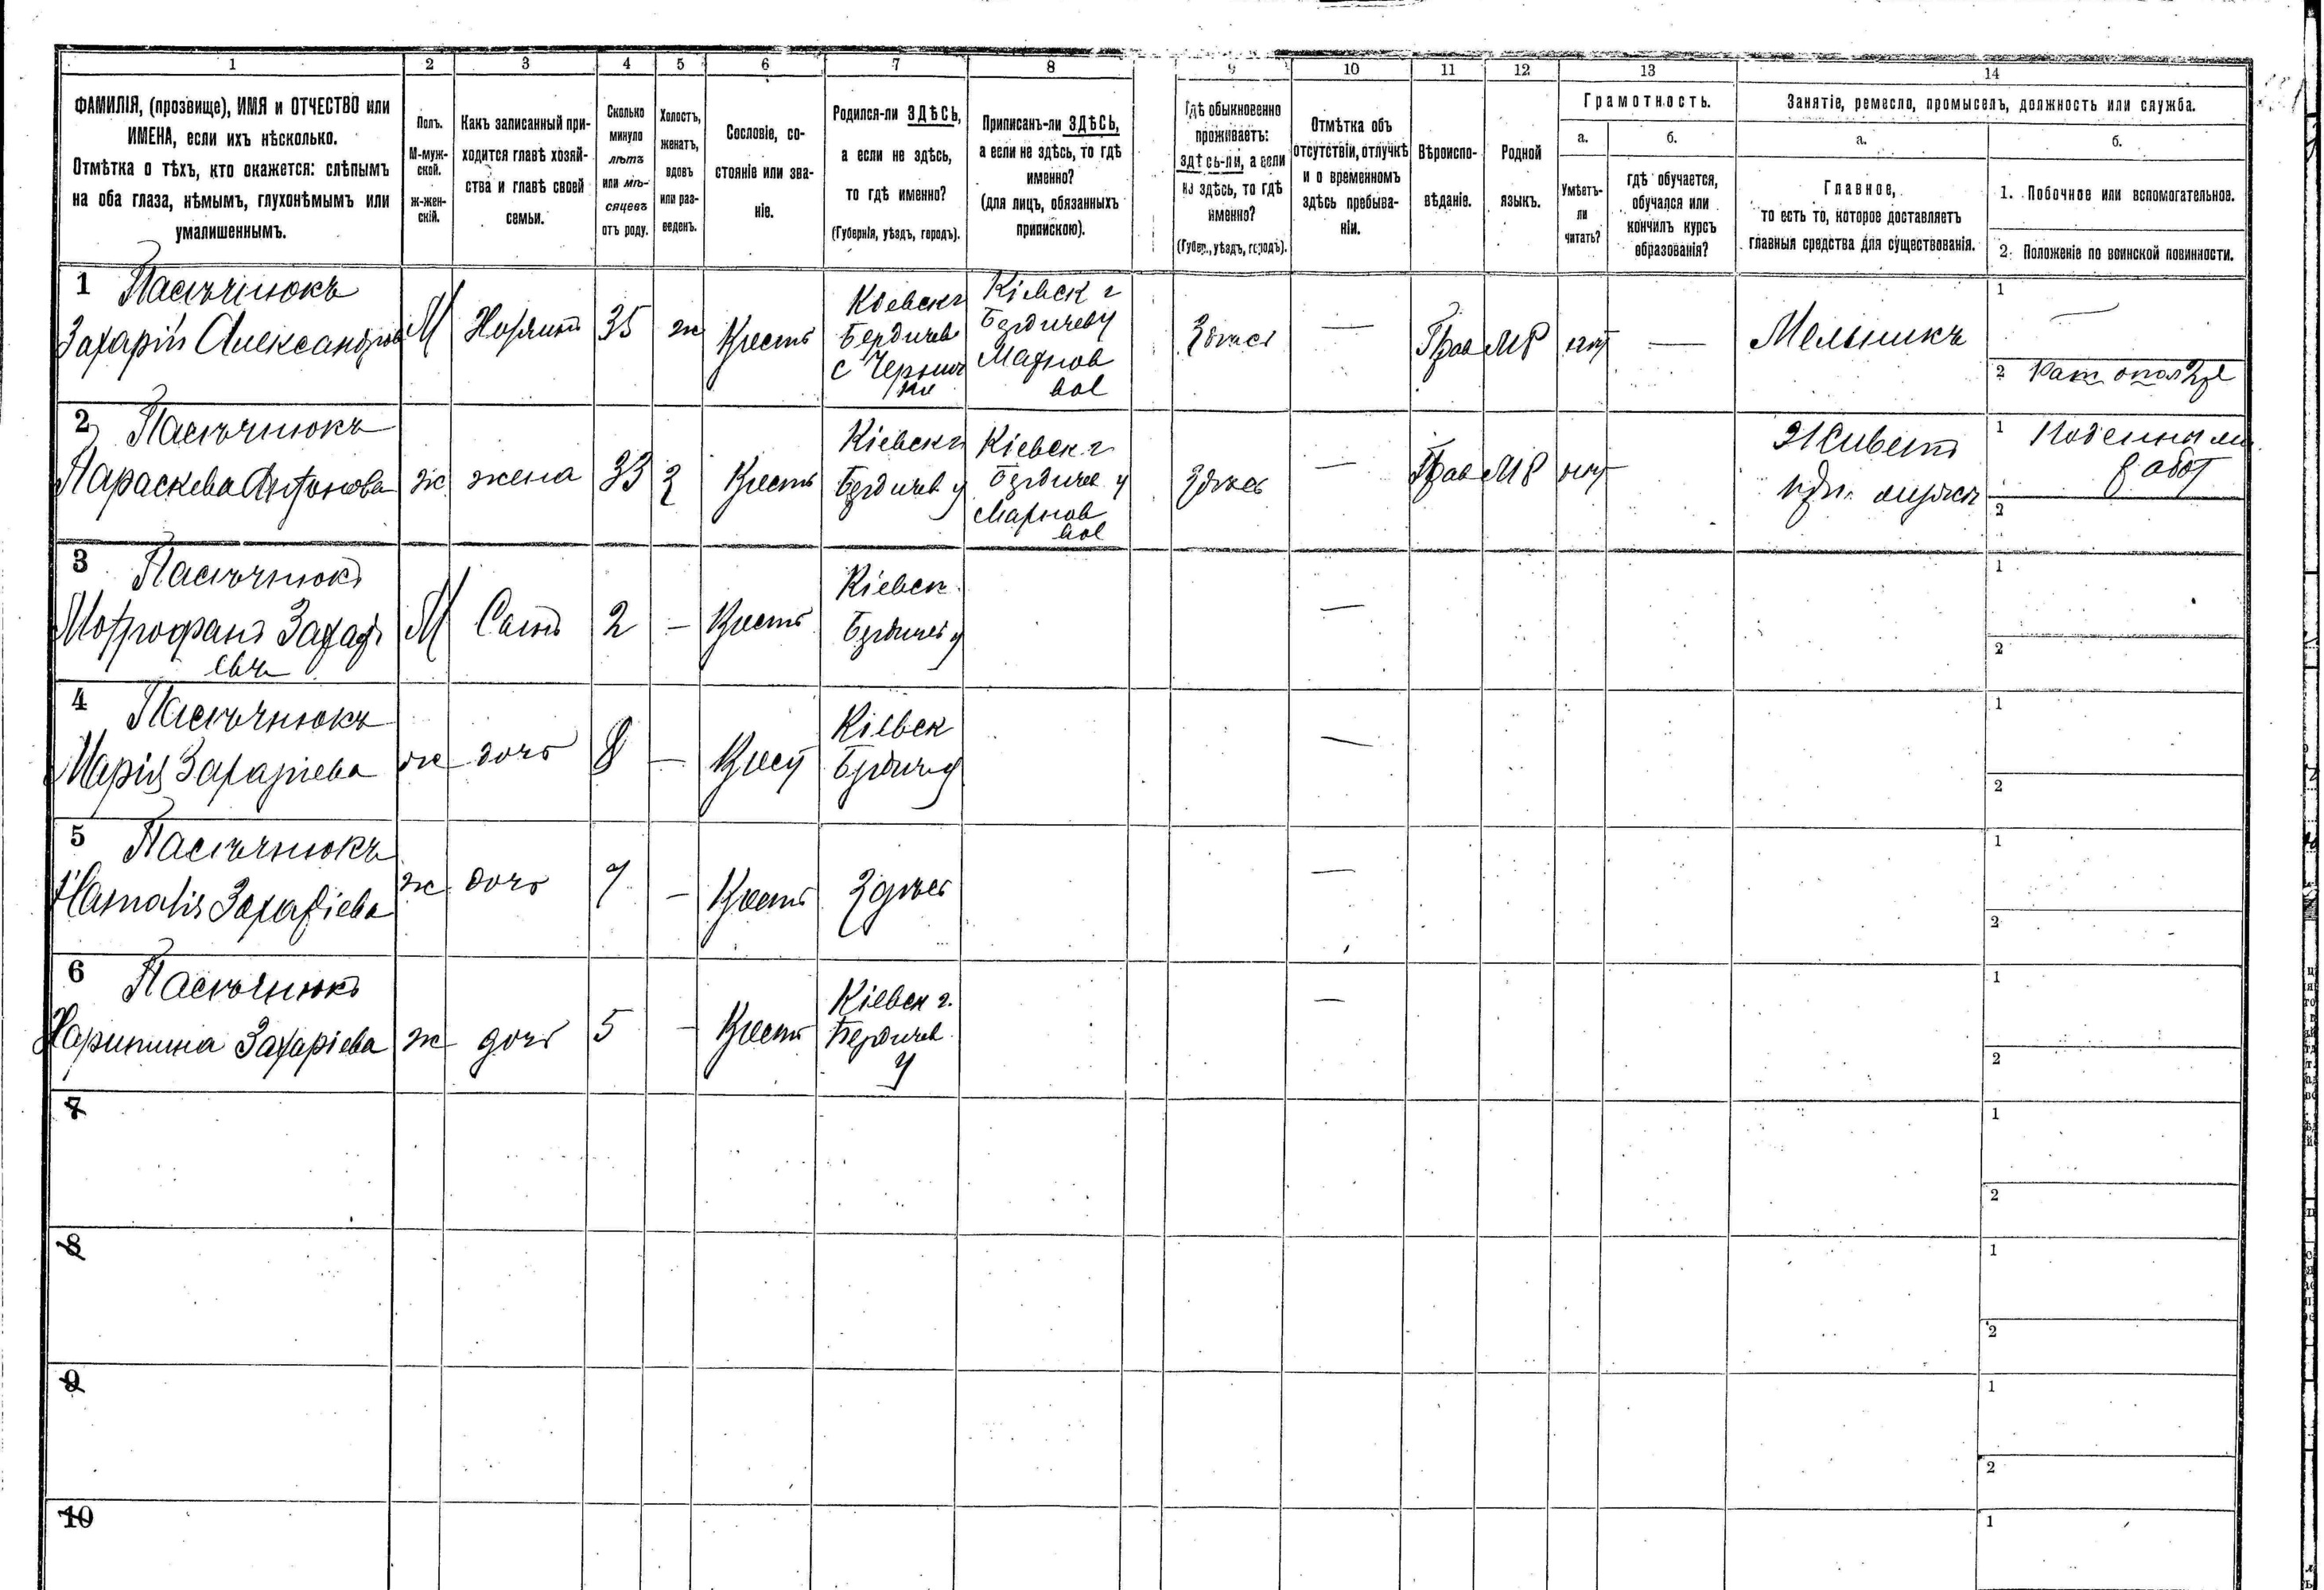 1
2
3
4
5
6
7
8
9
10
11
12
13
14
ФАМИЛІЯ, (прозвище), ИМЯ и ОТЧЕСТВО или
ИМЕНА, если ихъ нѣсколько.
Отмѣтка о тѣхъ, кто окажется: слѣпымъ
на оба глаза, нѣмымъ, глухонѣмымъ или
умалишеннымъ.
Полъ.
М-муж-
ской.
ж-жен-
скій.
Какъ записанный при-
ходится главѣ хозяй-
ства и главѣ своей
семьи.
Сколько
минуло
лѣтъ
или мѣ-
сяцевъ
отъ роду.
Холостъ,
женатъ,
вдовъ
или раз-
веденъ.
Сословіе, со-
стояніе или зва-
ніе.
Родился-ли ЗДѢСЬ,
а если не здѣсь,
то гдѣ именно?
(Губернія, уѣздъ, городъ).
Приписанъ-ли ЗДѢСЬ,
а если не здѣсь, то гдѣ
именно?
(для лицъ, обязанныхъ
припискою).
Гдѣ обыкновенно
проживаетъ:
здѣсь-ли, а если
не здѣсь, то гдѣ
именно?
(Губер., уѣздъ, городъ).
Отмѣтка объ
отсутствіи, отлучкѣ
и о временномъ
здѣсь пребыва-
ніи.
Вѣроиспо-
вѣданіе.
Родной
языкъ.
Грамотность.
а.
Умѣетъ-
ли
читать?
б.
гдѣ обучается,
обучался или
кончилъ курсъ
образованія?
Занятіе, ремесло, промыселъ, должность или служба.
а.
Главное,
то есть то, которое доставляетъ
главныя средства для существованія.
б.
1. Побочное или вспомогательное.
2. Положеніе по воинской повинности.
1 Пасѣчнюкъ
Захарій Александров
М
35
ж
Крест
Кіевск г
Бердичев
с
Кіевск г
Бердичев у
Махнов
вол
Здѣсь
—
Прав
МР
нѣт
—
Мельникъ
1 —
2
2 Пасѣчнюкъ
Параскева Антонова
ж
жена
33
З
Крест
Кіевск г
Бердичев у
Кіевск г
Бердичев у
Махнов
вол
Здѣсь
—
Прав
МР
нѣт
Живет
при мужѣ
1 Поденными
работ
2
3 Пасѣчнюкъ
Захарі
евъ
М
Сынъ
2
—
Крест
Кіевск
Бердичев у
—
1
2
4 Пасѣчнюкъ
Марія Захаріева
ж
дочь
8
—
Крест
Кіевск
Бердич у
—
1
2
5 Пасѣчнюкъ
Наталія Захаріева
ж
дочь
7
—
Крест
Здѣсь
—
1
2
6 Пасѣчнюкъ
Захаріева
ж
дочь
5
—
Крест
Кіевск г.
Бердичев
у
—
1
2
7
1
2
8
1
2
9
1
2
10
1